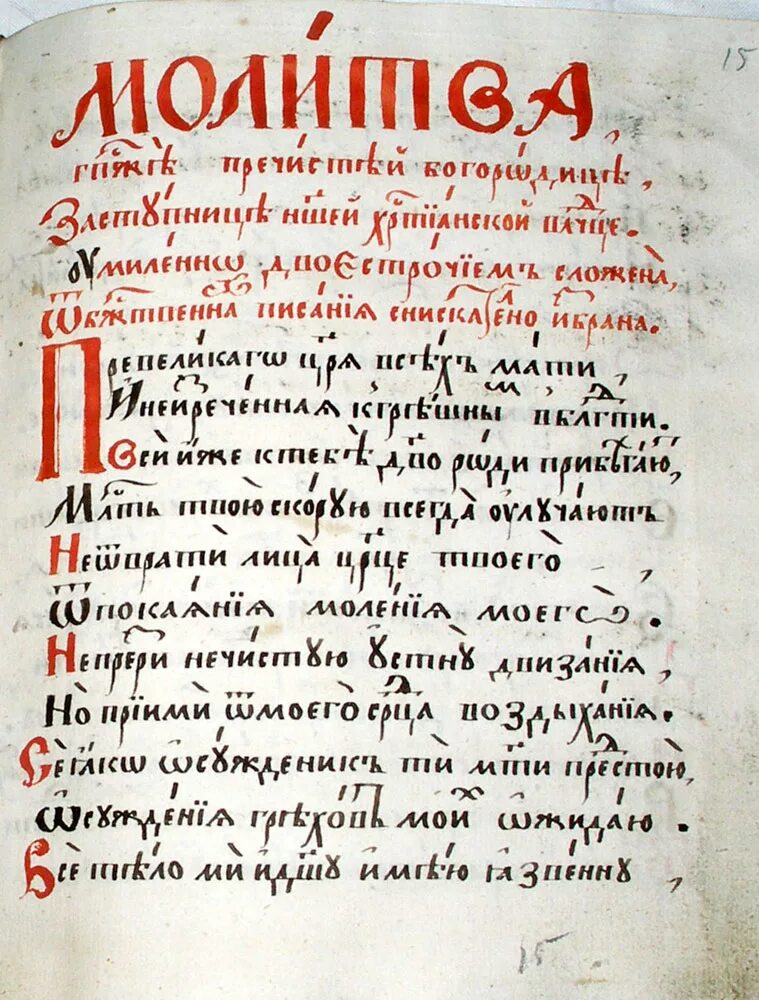 15
МОЛИ́ТВА
гп҃жѣ пречи́стѣй богоро́дицѣ,
Засту́пницѣ н҃шей хрⷭ҇тїа́нской влⷣчцѣ.
оумиле́ннѡ двоестро́чїемъ сложена̀,
ѿ бжⷭ҇твенна писа́нїя сниска́ено и҆збрана.
Превели́кагѡ цр҃я всѣ́хъ ма́ти,
И҆ неи҆зрече́нная къ грѣ́шнымъ в бл҃года́ти.
Всѝ и҆́же к тебѣ̀ дв҃о ро́ди прибѣга́ю,
Млⷭ҇ть твою̀ ско́рую всегда̀ оулуча́ютъ
Не ѿвратѝ лица̀ цр҃це твоегѡ̀,
ѿ покая́нїя моле́нїя моегѡ̀.
Не пре́зри нечи́стую оустнꙋ̀ двиза́нїя,
Но прїимѝ ѿ моегѡ̀ срⷣца воздыха́нїя.
Се́ ꙗ҆кѡ ѡ҆сужденикъ тѝ мт҃и предстою̀,
Ѡ҆сужде́нїя грѣхо́въ мои́хъ ѡ҆жида́ю.
Всѐ тѣ́ло мѝ и҆ дш҃у и҆мѣ́ю ꙗ҆́звеннꙋ,
15